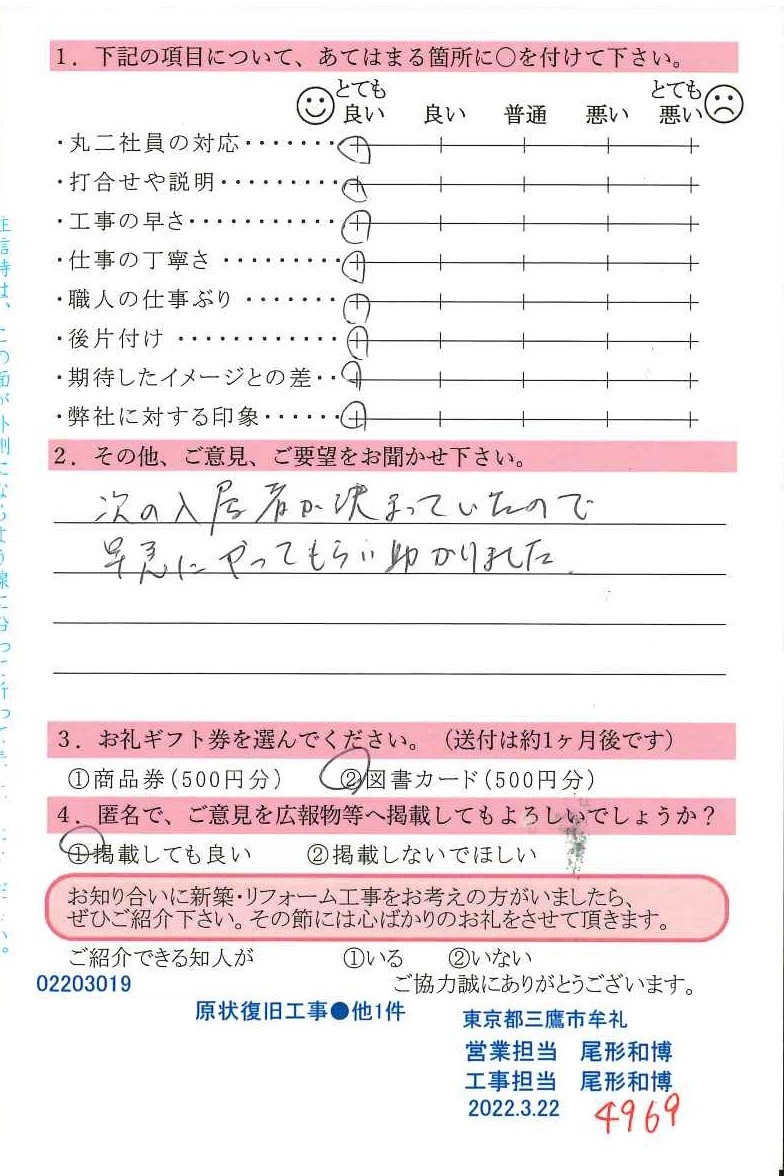 1．下記の項目について、あてはまる箇所に○を付けて下さい。
とても良い 良い 普通 悪い とても悪い
・丸二社員の対応・・・・・・・
・打合せや説明・・・・・・・・・
・工事の早さ・・・・・・・・・・・
・仕事の丁寧さ・・・・・・・・・
・職人の仕事ぶり・・・・・・・・
・後片付け・・・・・・・・・・・・
・期待したイメージとの差・・
・弊社に対する印象・・・・・・
2．その他、ご意見、ご要望をお聞かせ下さい。
次の入居者が決まっていたので
早急にやってもらい助かりました
3．お礼ギフト券を選んでください。（送付は約1ヶ月後です）
①商品券（500円分） ②図書カード（500円分）
4．匿名で、ご意見を広報物等へ掲載してもよろしいでしょうか？
①掲載しても良い ②掲載しないでほしい
お知り合いに新築・リフォーム工事をお考えの方がいましたら、
ぜひご紹介下さい。その節には心ばかりのお礼をさせて頂きます。
ご紹介できる知人が ①いる ②いない
02203019
ご協力誠にありがとうございます。
原状復旧工事●他1件
東京都三鷹市牟礼
営業担当 尾形和博
工事担当 尾形和博
2022.3.22
4969